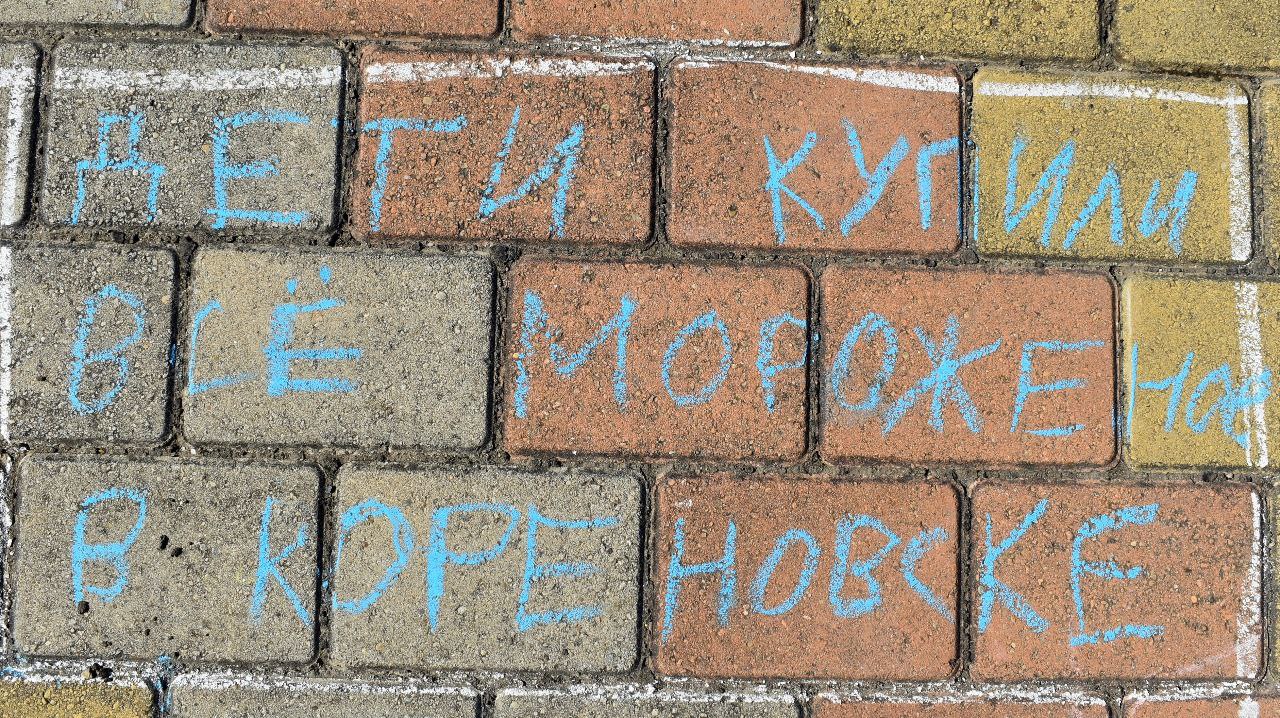 ДЕТИ КУПИЛИ
ВСЁ МОРОЖЕНОЕ
В КОРЕНОВСКЕ